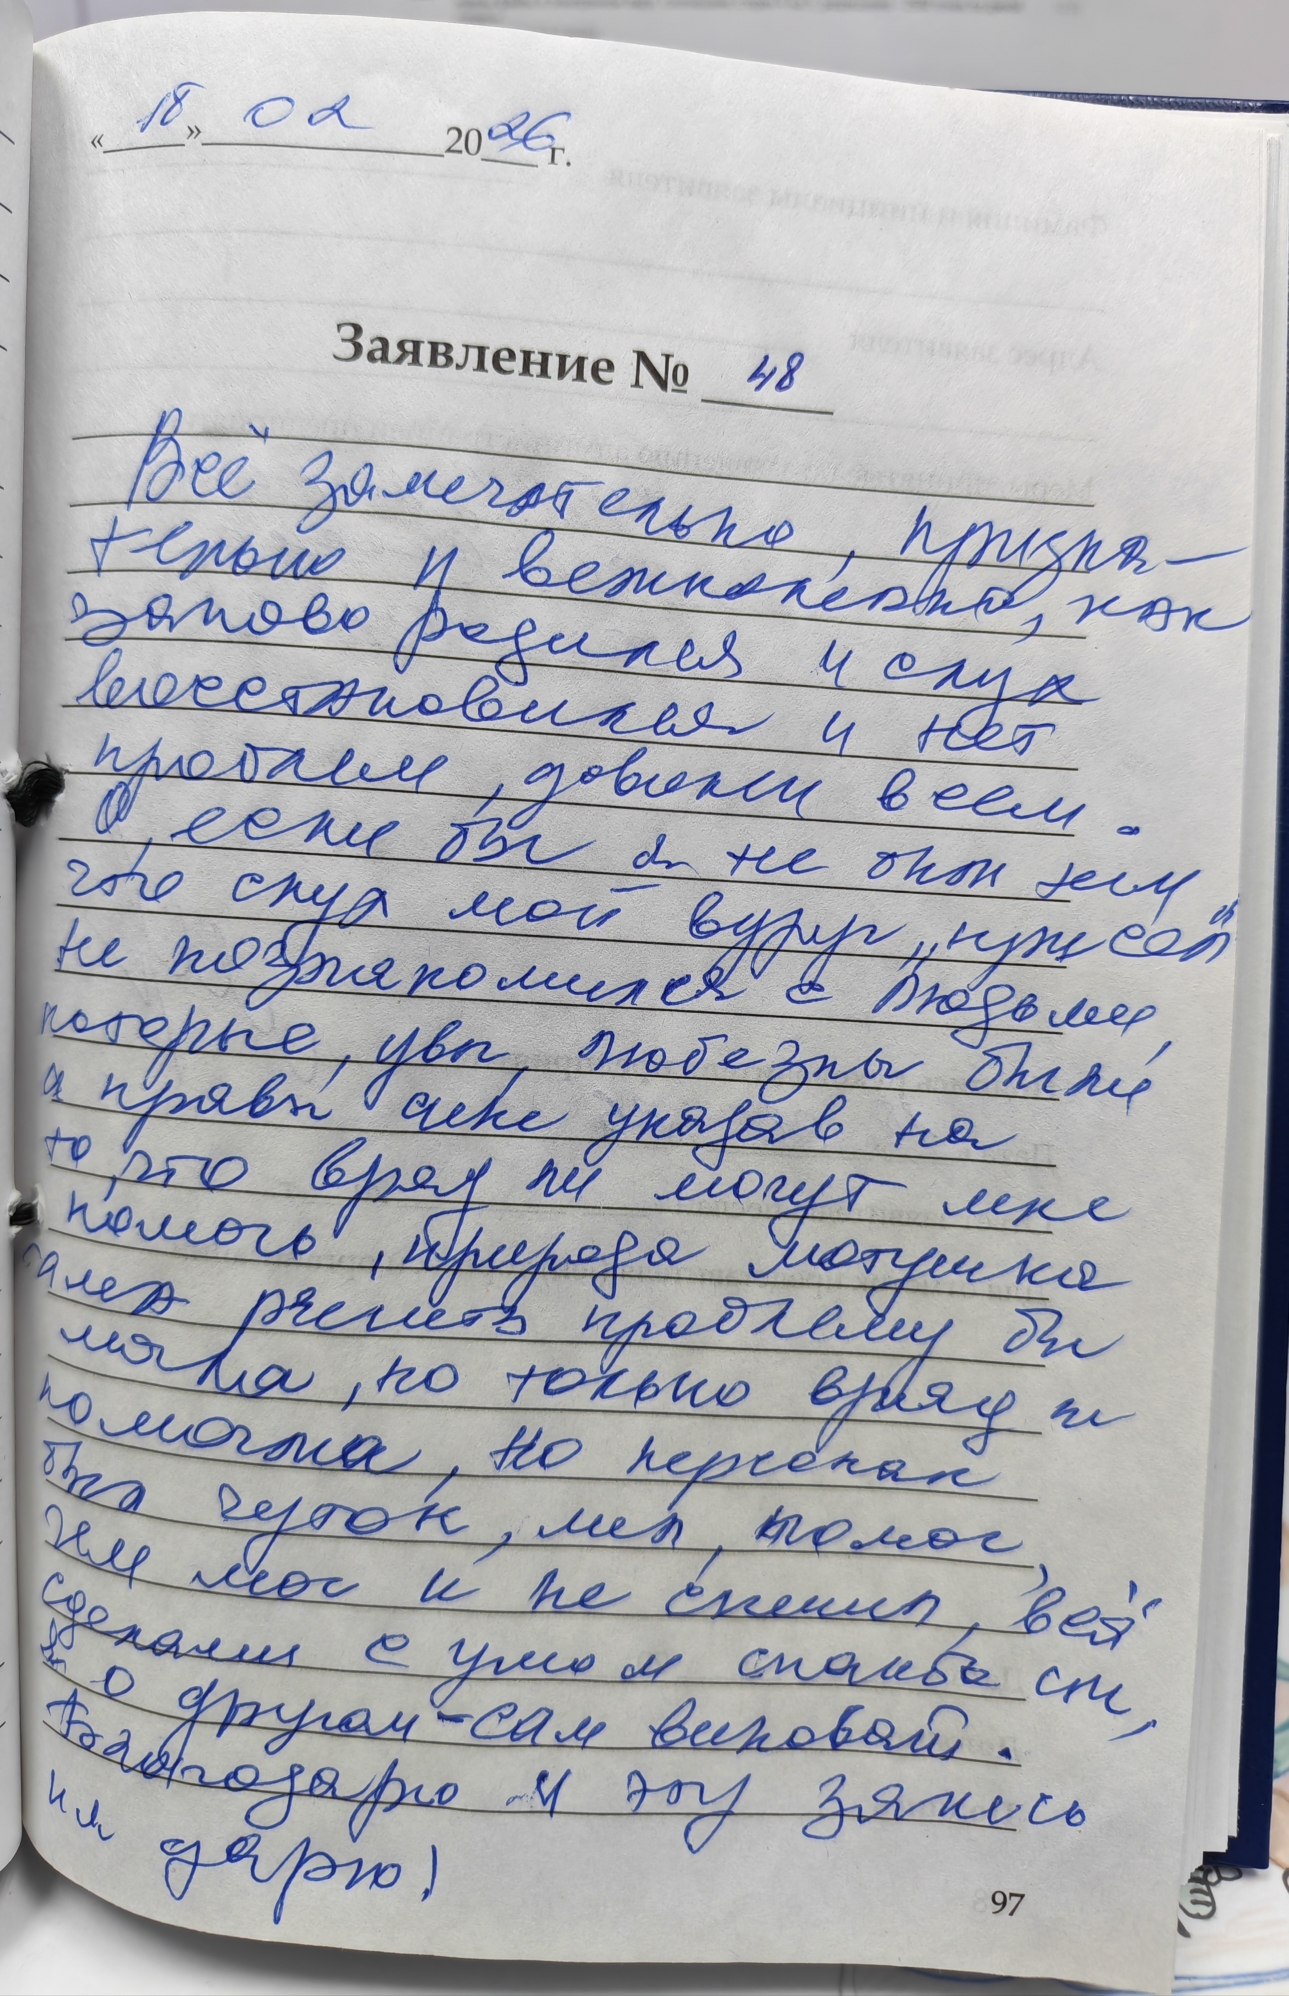 « 18 » 02 2026 г.
Заявление № 48
Всё замечательно, призна-
тельно и великолепно, как
заново родился и слух
восстановился и нет
проблем, доволен всем.
О, если бы я не был нем,
что слух мой вдруг
не познакомился с людьми,
которые, увы, любезны были
а правы мне указав на
то, что вряд ли могут мне
помочь, природа матушка
сама решить проблему бы
могла, но только вряд ли
помогла, но персонал
был чуток, мил, помог,
чем мог и не спешил, всё
сделали с умом спасибо им,
а о другом - сам виноват.
Благодарю и эту запись
им дарю!
97